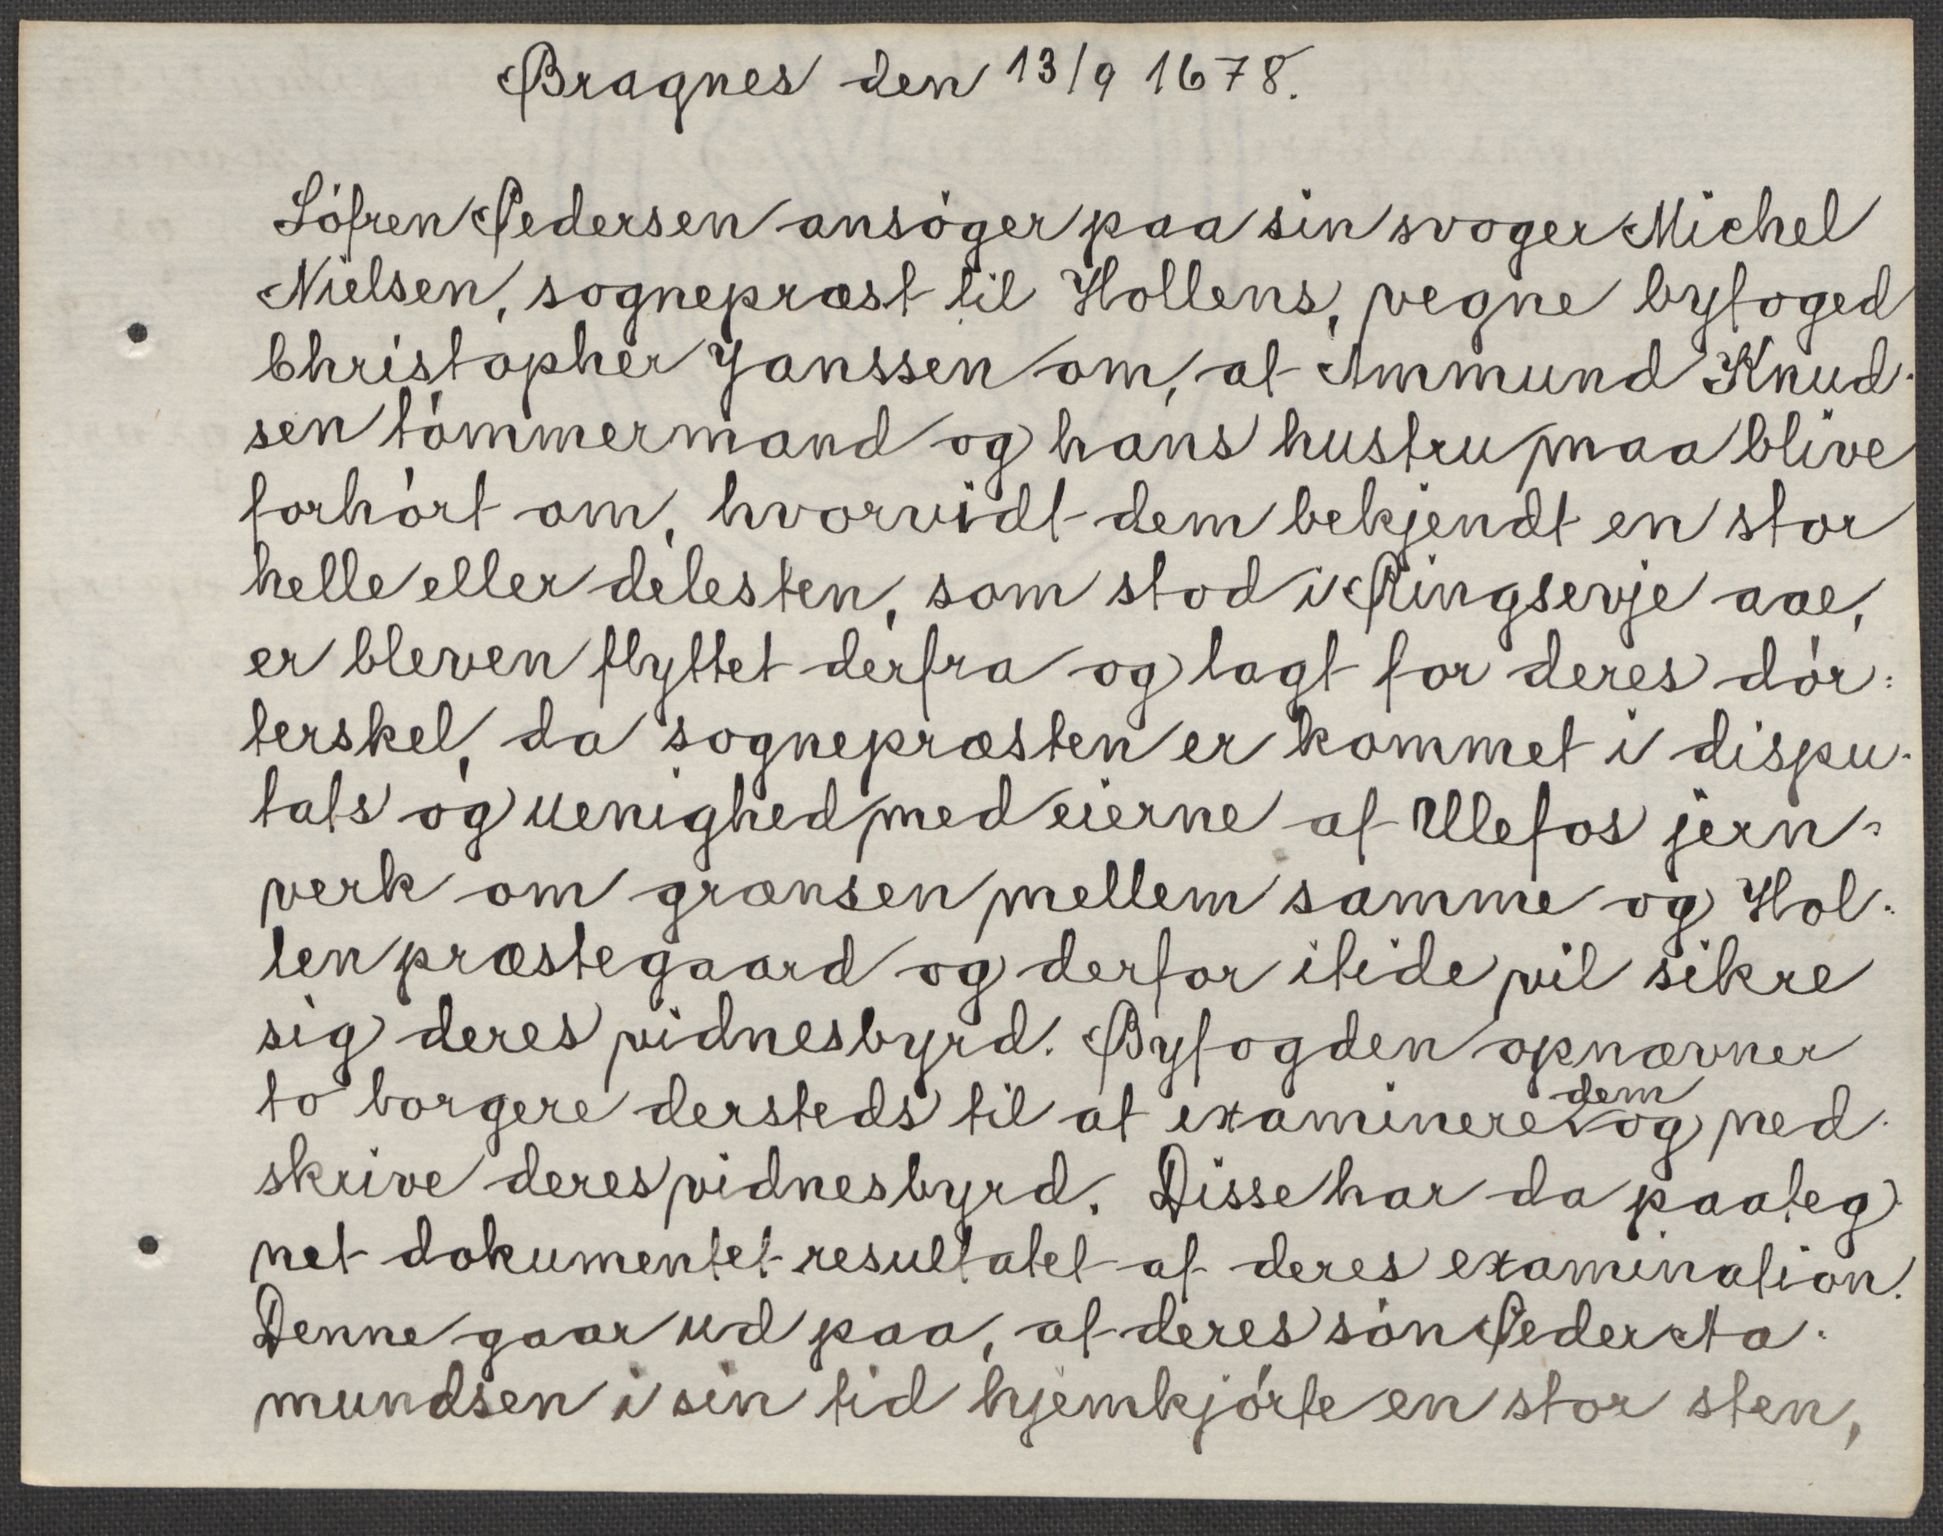 Bragnes den 13/9 1678.
Söfren Pedersen ansöger paa sin svoger Michel
Nielsen, sognepræst til Hollens, vegne byfoged
Christopher Janssen om, at Ammund Knud-
sen tömmermand og hans hustru maa blive
forhört om, hvorvidt dem bekjendt en stor
helle eller delesten, som stod i Ringsevje aae,
er bleven flyttet derfra og lagt for deres dör-
terskel, da sognepræsten er kommet i dispu-
tats og uenighed med eierne af Ulefos jern-
verk om grænsen mellem samme og Hol-
len præstegaard og derfor itide vil sikre
sig deres vidnesbyrd. Byfogden opnævner
to borgere dersteds til at examinere dem og ned-
skrive deres vidnesbyrd. Disse har da paateg-
net dokumentet resultatet af deres examination.
Denne gaar ud paa, at deres sön Peder Aa-
mundsen i sin tid hjemkjörte en stor sten,